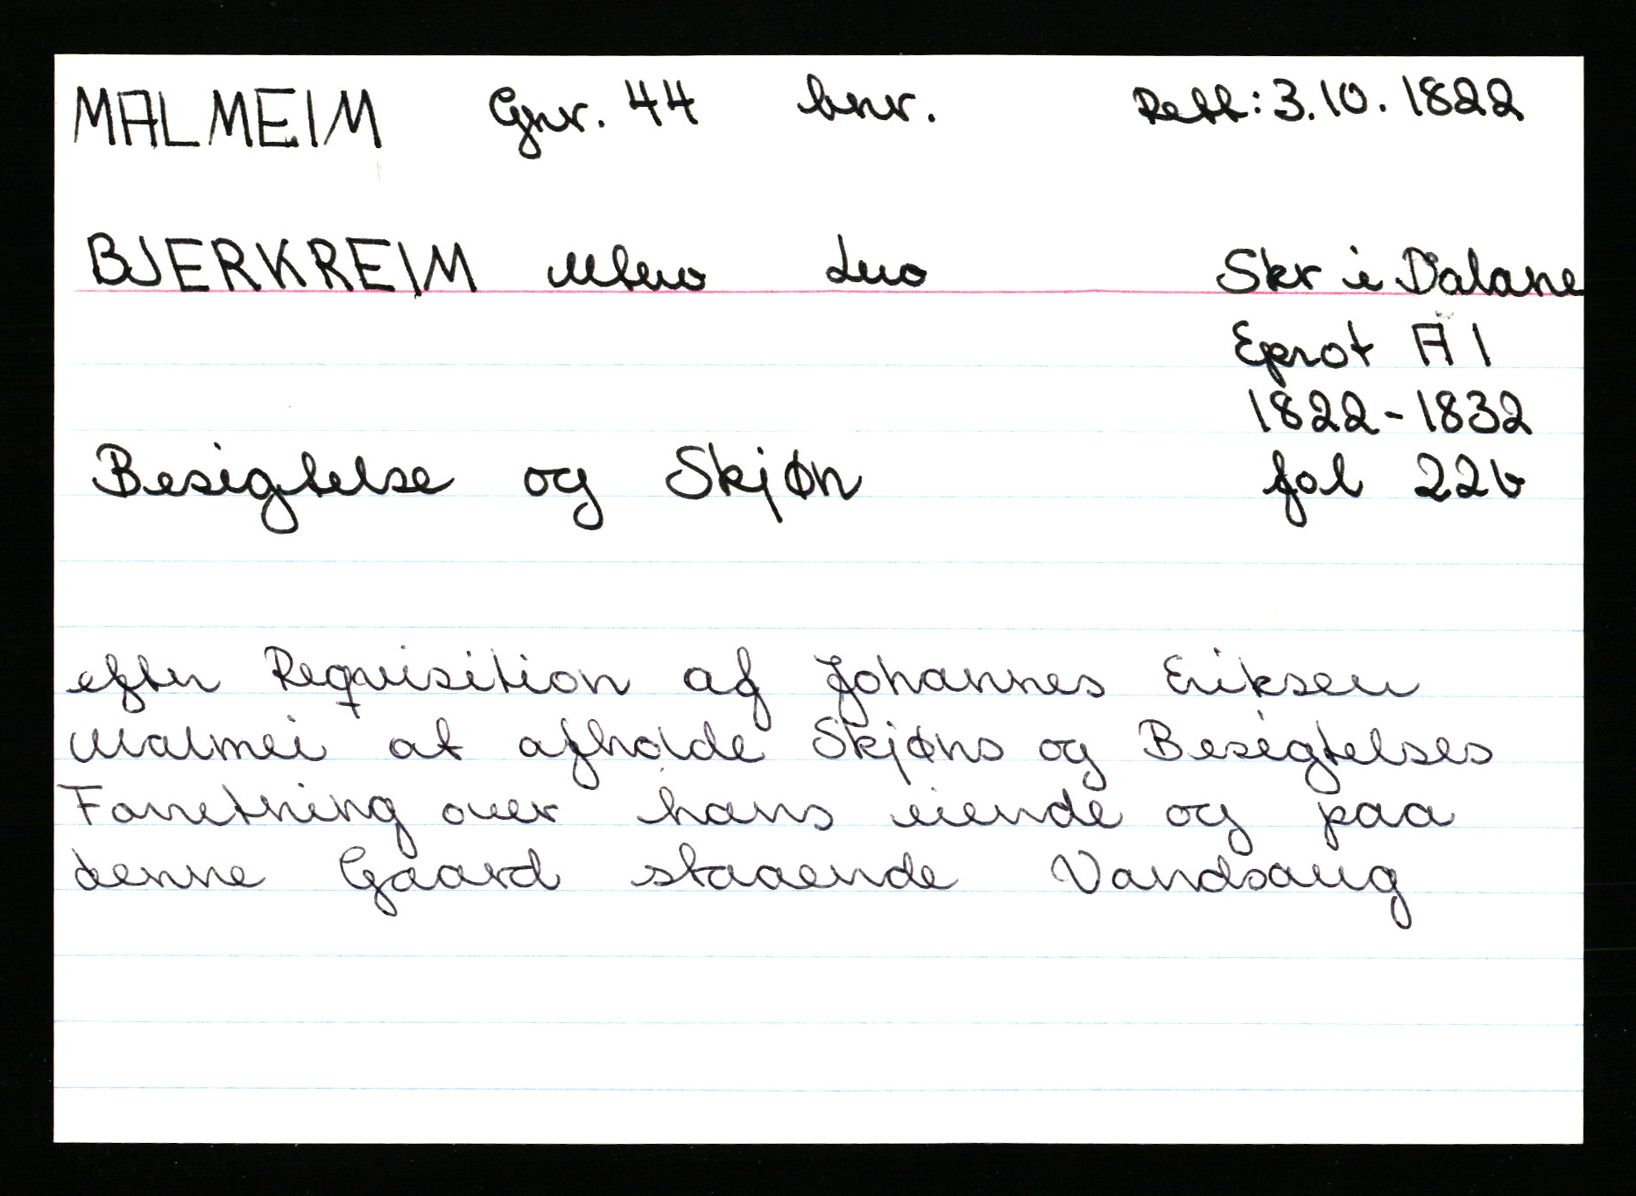 MALMEIM Gnr. 44 bnr. Rett: 3.10.1822
BJERKREIM Mnr Lnr Skr i Dalane
Eprot A 1
1822-1832
Besigtelse og Skjøn fol 22b
efter Requisition af Johannes Eriksen
Malmei at afholde Skjøns og Besigtelses
Forretning over hans eiende og paa
denne Gaard staaende Vandsaug